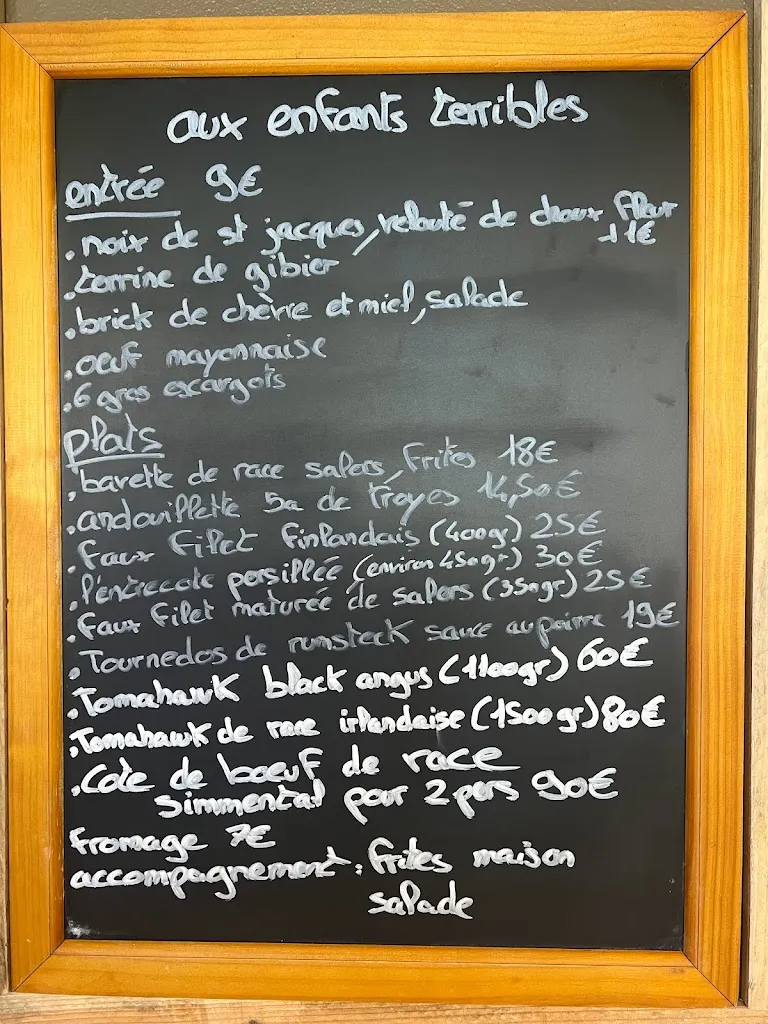 aux enfants terribles
entrée 9€
. noix de st jacques, velouté de choux fleur
+1€
. terrine de gibier
. brick de chèvre et miel, salade
. oeuf mayonnaise
. 6 gros escargots
plats
. bavette de race salers, frites 18€
. andouillette 5a de troyes 14,50€
. faux filet finlandais (400gr) 25€
. l'entrecote persillée (environ 450gr) 30€
. faux filet maturée de salers (350gr) 25€
. Tournedos de rumsteck sauce au poivre 19€
. Tomahawk black angus (1100gr) 60€
. Tomahawk de race irlandaise (1500gr) 80€
. Cote de boeuf de race
simmental pour 2 pers 90€
fromage 7€
accompagnement : frites maison
salade